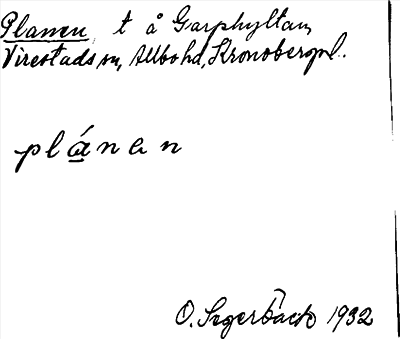 Planen, t å Garphyltan,
Virestads sn, Allbo hd, Kronobergs l.
plánen
O. Segerbäck 1932